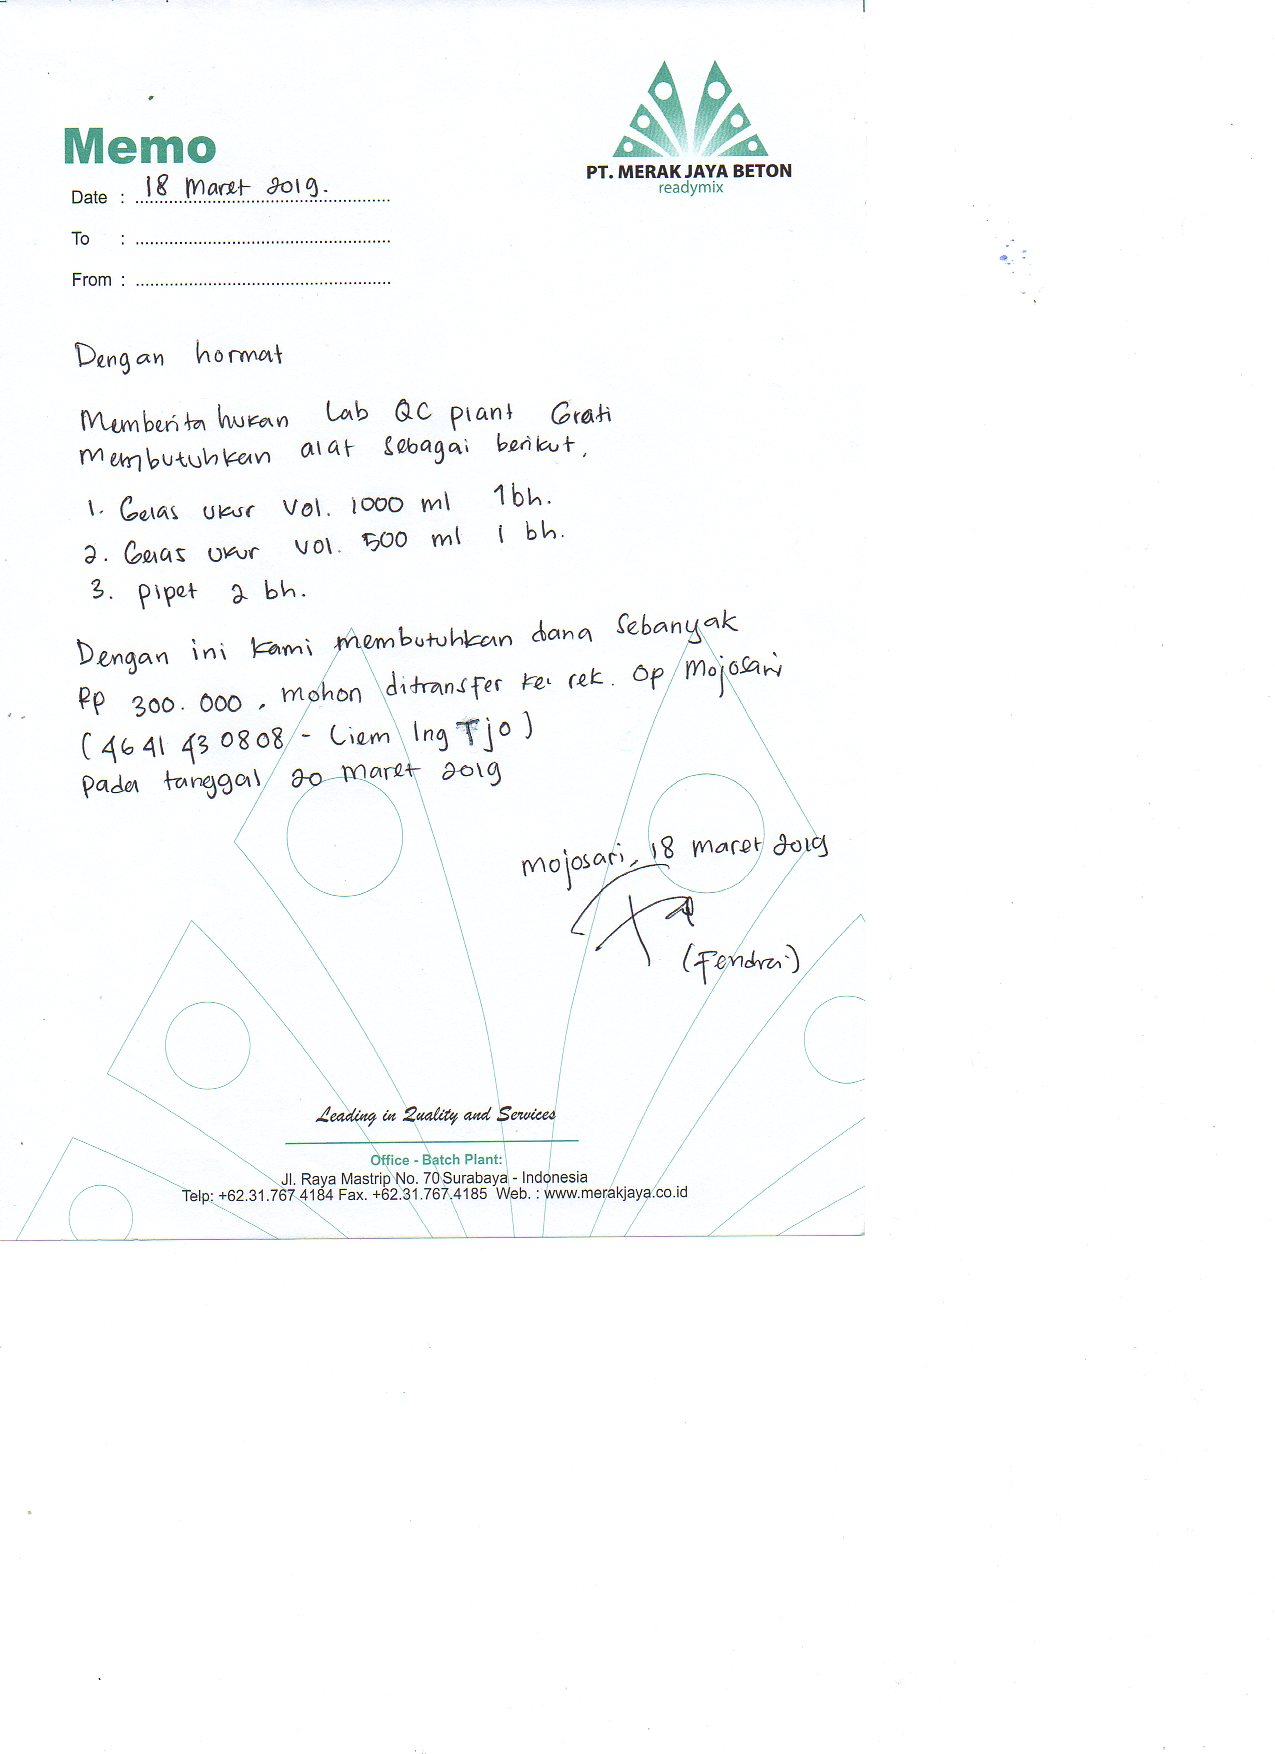 Memo
PT. MERAK JAYA BETON
readymix
Date : 18 Maret 2019.
To :
From :
Dengan hormat
Memberitahukan Lab QC plant Grati
Membutuhkan alat sebagai berikut,
1. Gelas ukur Vol. 1000 ml 1bh.
2. Gelas ukur Vol. 500 ml 1 bh.
3. pipet 2 bh.
Dengan ini kami membutuhkan dana Sebanyak
Rp 300.000, mohon ditransfer ke rek. Op Mojosari
(4641430808 - Liem Ing Tjo)
pada tanggal 20 maret 2019
Mojosari, 18 maret 2019
(Fendra)
Leading in Quality and Services
Office - Batch Plant:
Jl. Raya Mastrip No. 70 Surabaya - Indonesia
Telp: +62.31.767 4184 Fax. +62.31.767.4185 Web. : www.merakjaya.co.id